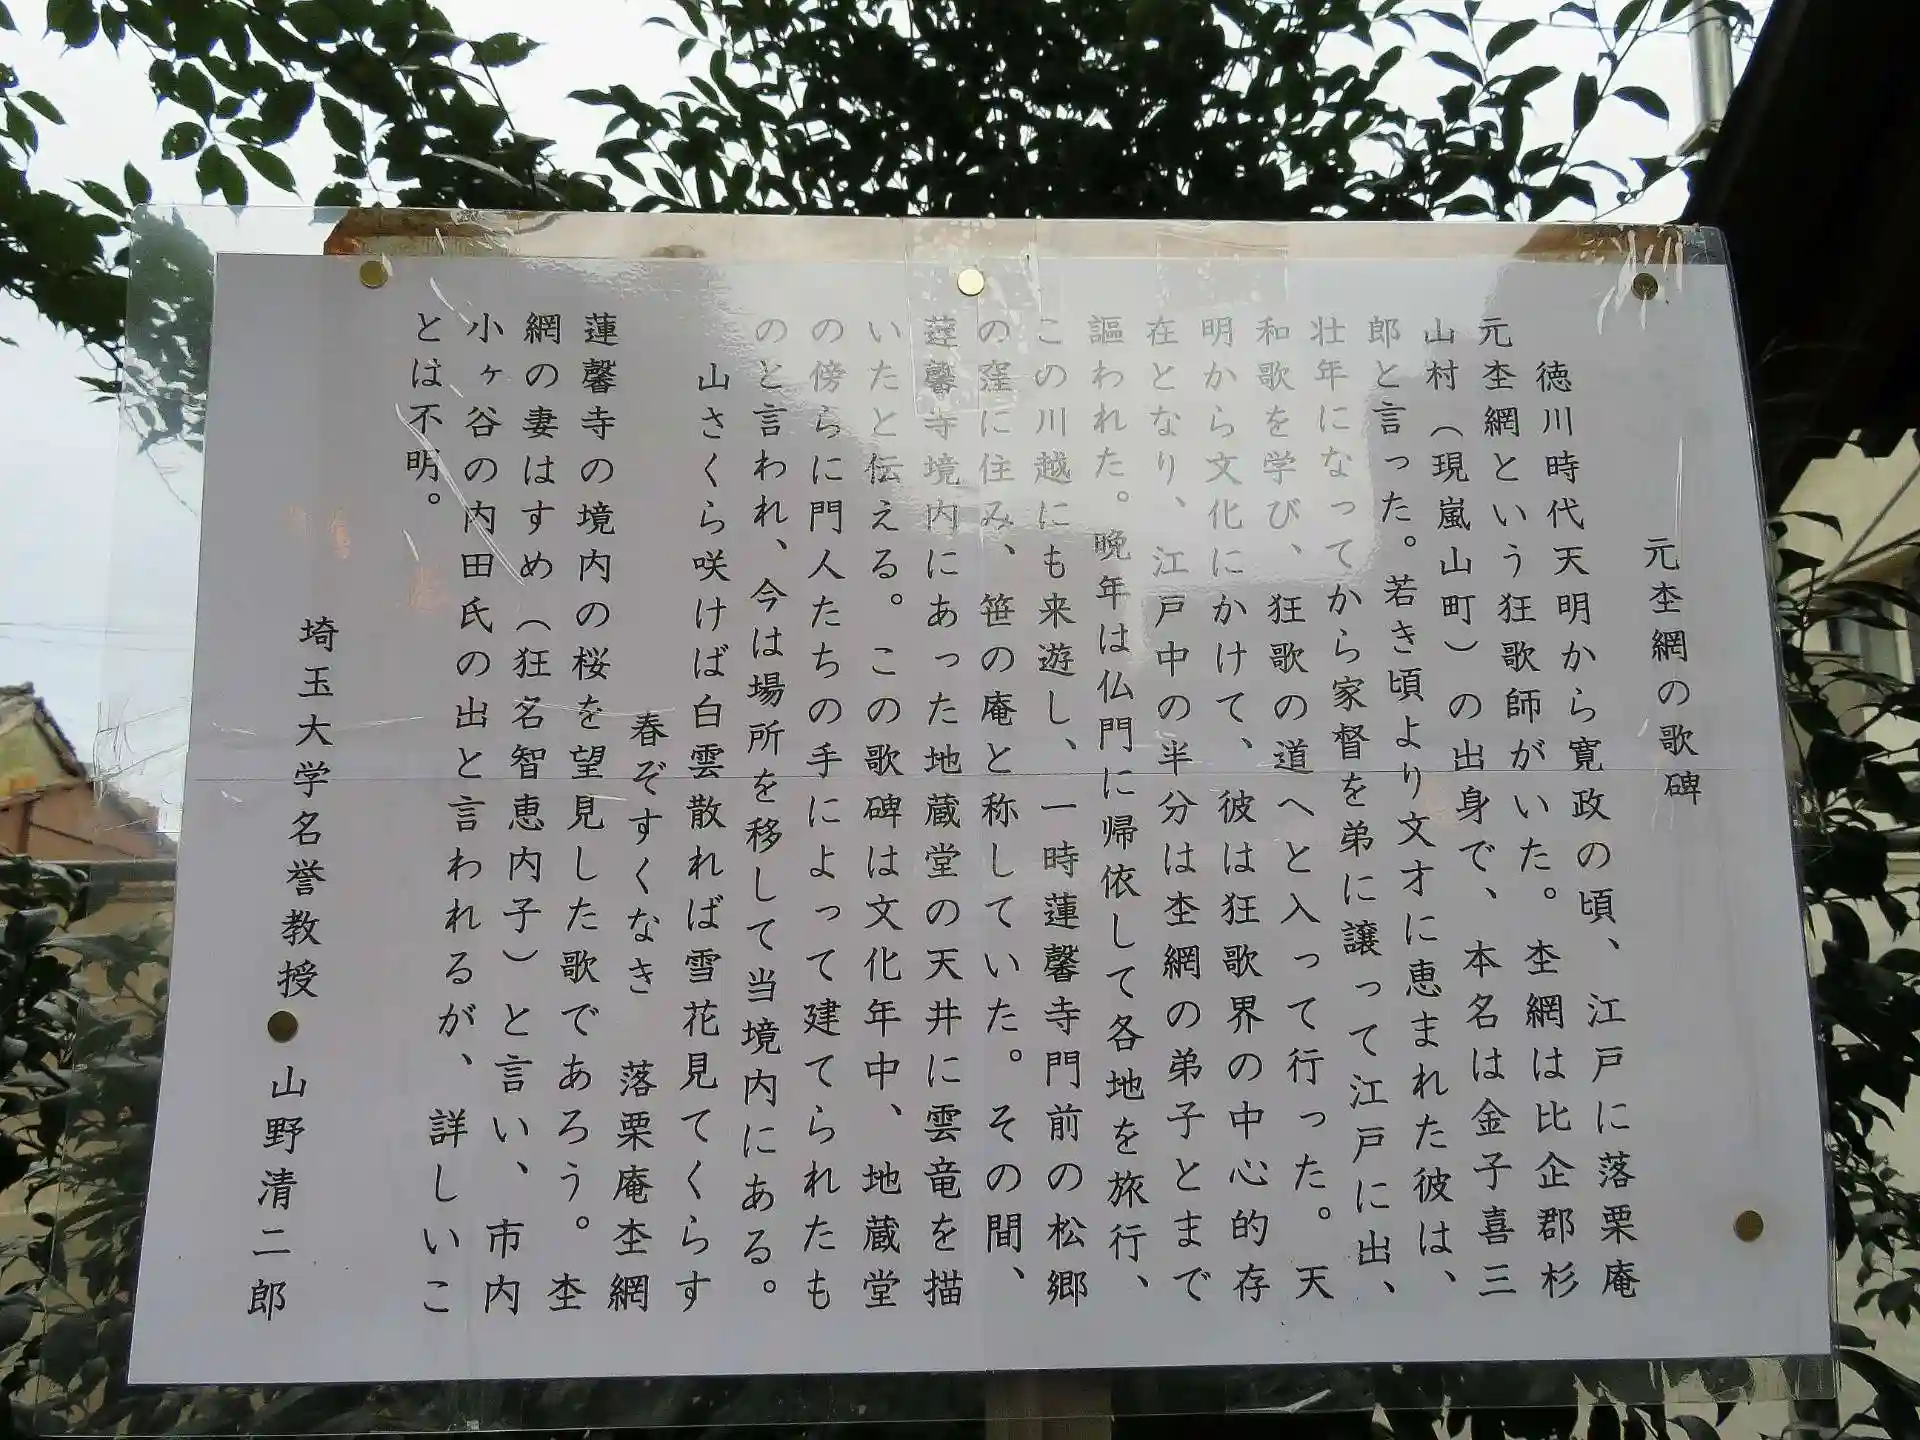 元杢網の歌碑
徳川時代天明から寛政の頃、江戸に落栗庵
元杢網という狂歌師がいた。杢網は比企郡杉
山村（現嵐山町）の出身で、本名は金子喜三
郎と言った。若き頃より文才に恵まれた彼は、
壮年になってから家督を弟に譲って江戸に出、
和歌を学び、狂歌の道へと入って行った。天
明から文化にかけて、彼は狂歌界の中心的存
在となり、江戸中の半分は杢網の弟子とまで
謳われた。晩年は仏門に帰依して各地を旅行、
この川越にも来遊し、一時蓮馨寺門前の松郷
の窪に住み、笹の庵と称していた。その間、
蓮馨寺境内にあった地蔵堂の天井に雲竜を描
いたと伝える。この歌碑は文化年中、地蔵堂
の傍らに門人たちの手によって建てられたも
のと言われ、今は場所を移して当境内にある。
山さくら咲けば白雲散れば雪花見てくらす
春ぞすくなき　落栗庵杢網
蓮馨寺の境内の桜を望見した歌であろう。杢
網の妻はすめ（狂名智恵内子）と言い、市内
小ヶ谷の内田氏の出と言われるが、詳しいこ
とは不明。
埼玉大学名誉教授　山野清二郎